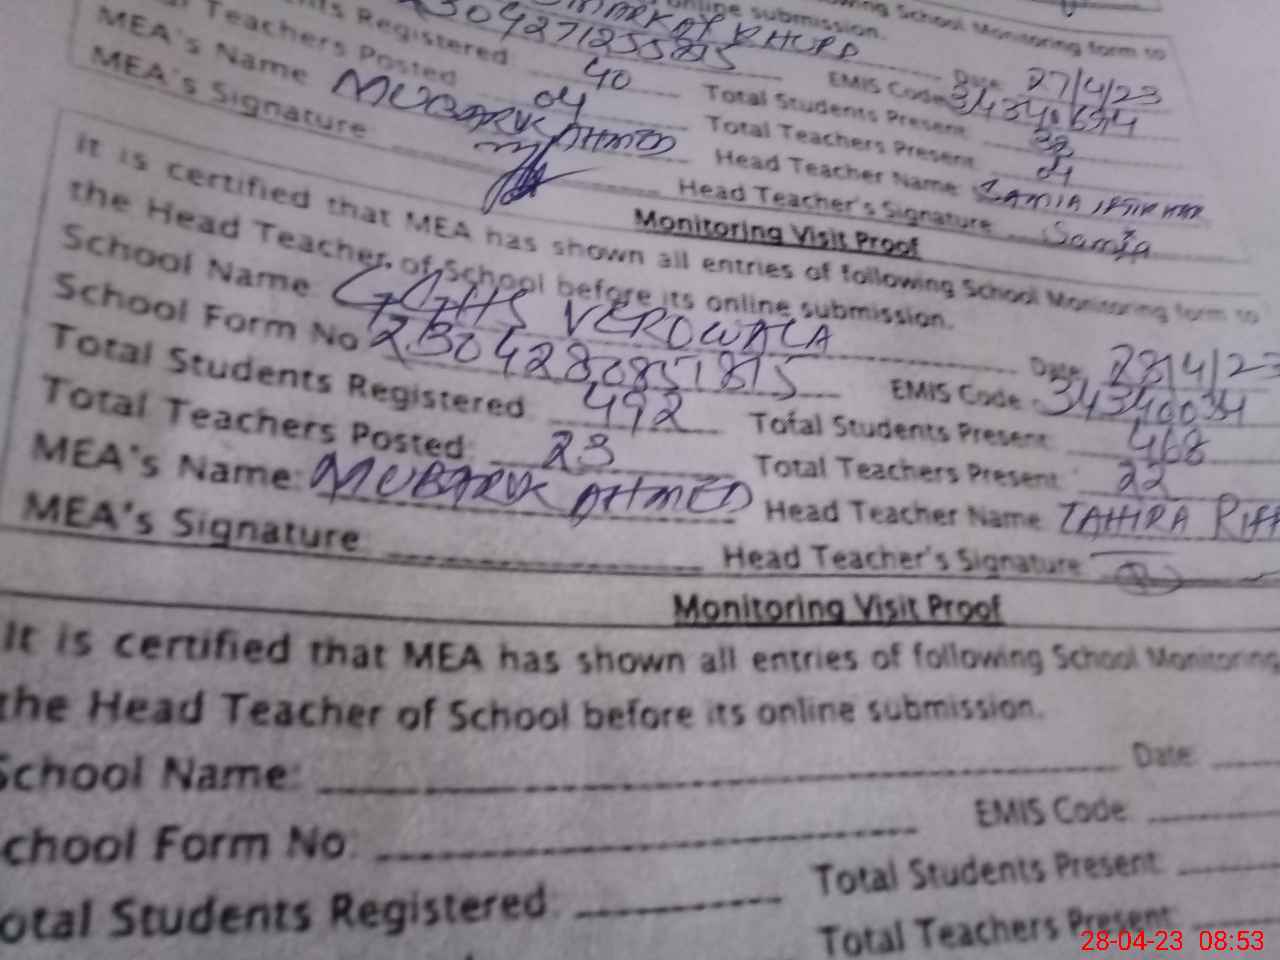 online submission.
Students Registered 40 EMIS Code Date 27/4/23
Teachers Posted 04 Total Students Present
MEA's Name MUBARUK AHMED Total Teachers Present 04
MEA's Signature Head Teacher Name
Head Teacher's Signature Samia
Monitoring Visit Proof
It is certified that MEA has shown all entries of following School Monitoring form to
the Head Teacher of School before its online submission.
School Name GGHS VEROWALA Date 28/4/23
School Form No 2304280857815 EMIS Code 34340034
Total Students Registered 492 Total Students Present 468
Total Teachers Posted: 23 Total Teachers Present 22
MEA's Name: MUBARUK AHMED Head Teacher Name TAHIRA
MEA's Signature Head Teacher's Signature
Monitoring Visit Proof
It is certified that MEA has shown all entries of following School Monitoring
the Head Teacher of School before its online submission.
School Name: Date:
chool Form No EMIS Code
otal Students Registered Total Students Present
Total Teachers Present
28-04-23 08:53